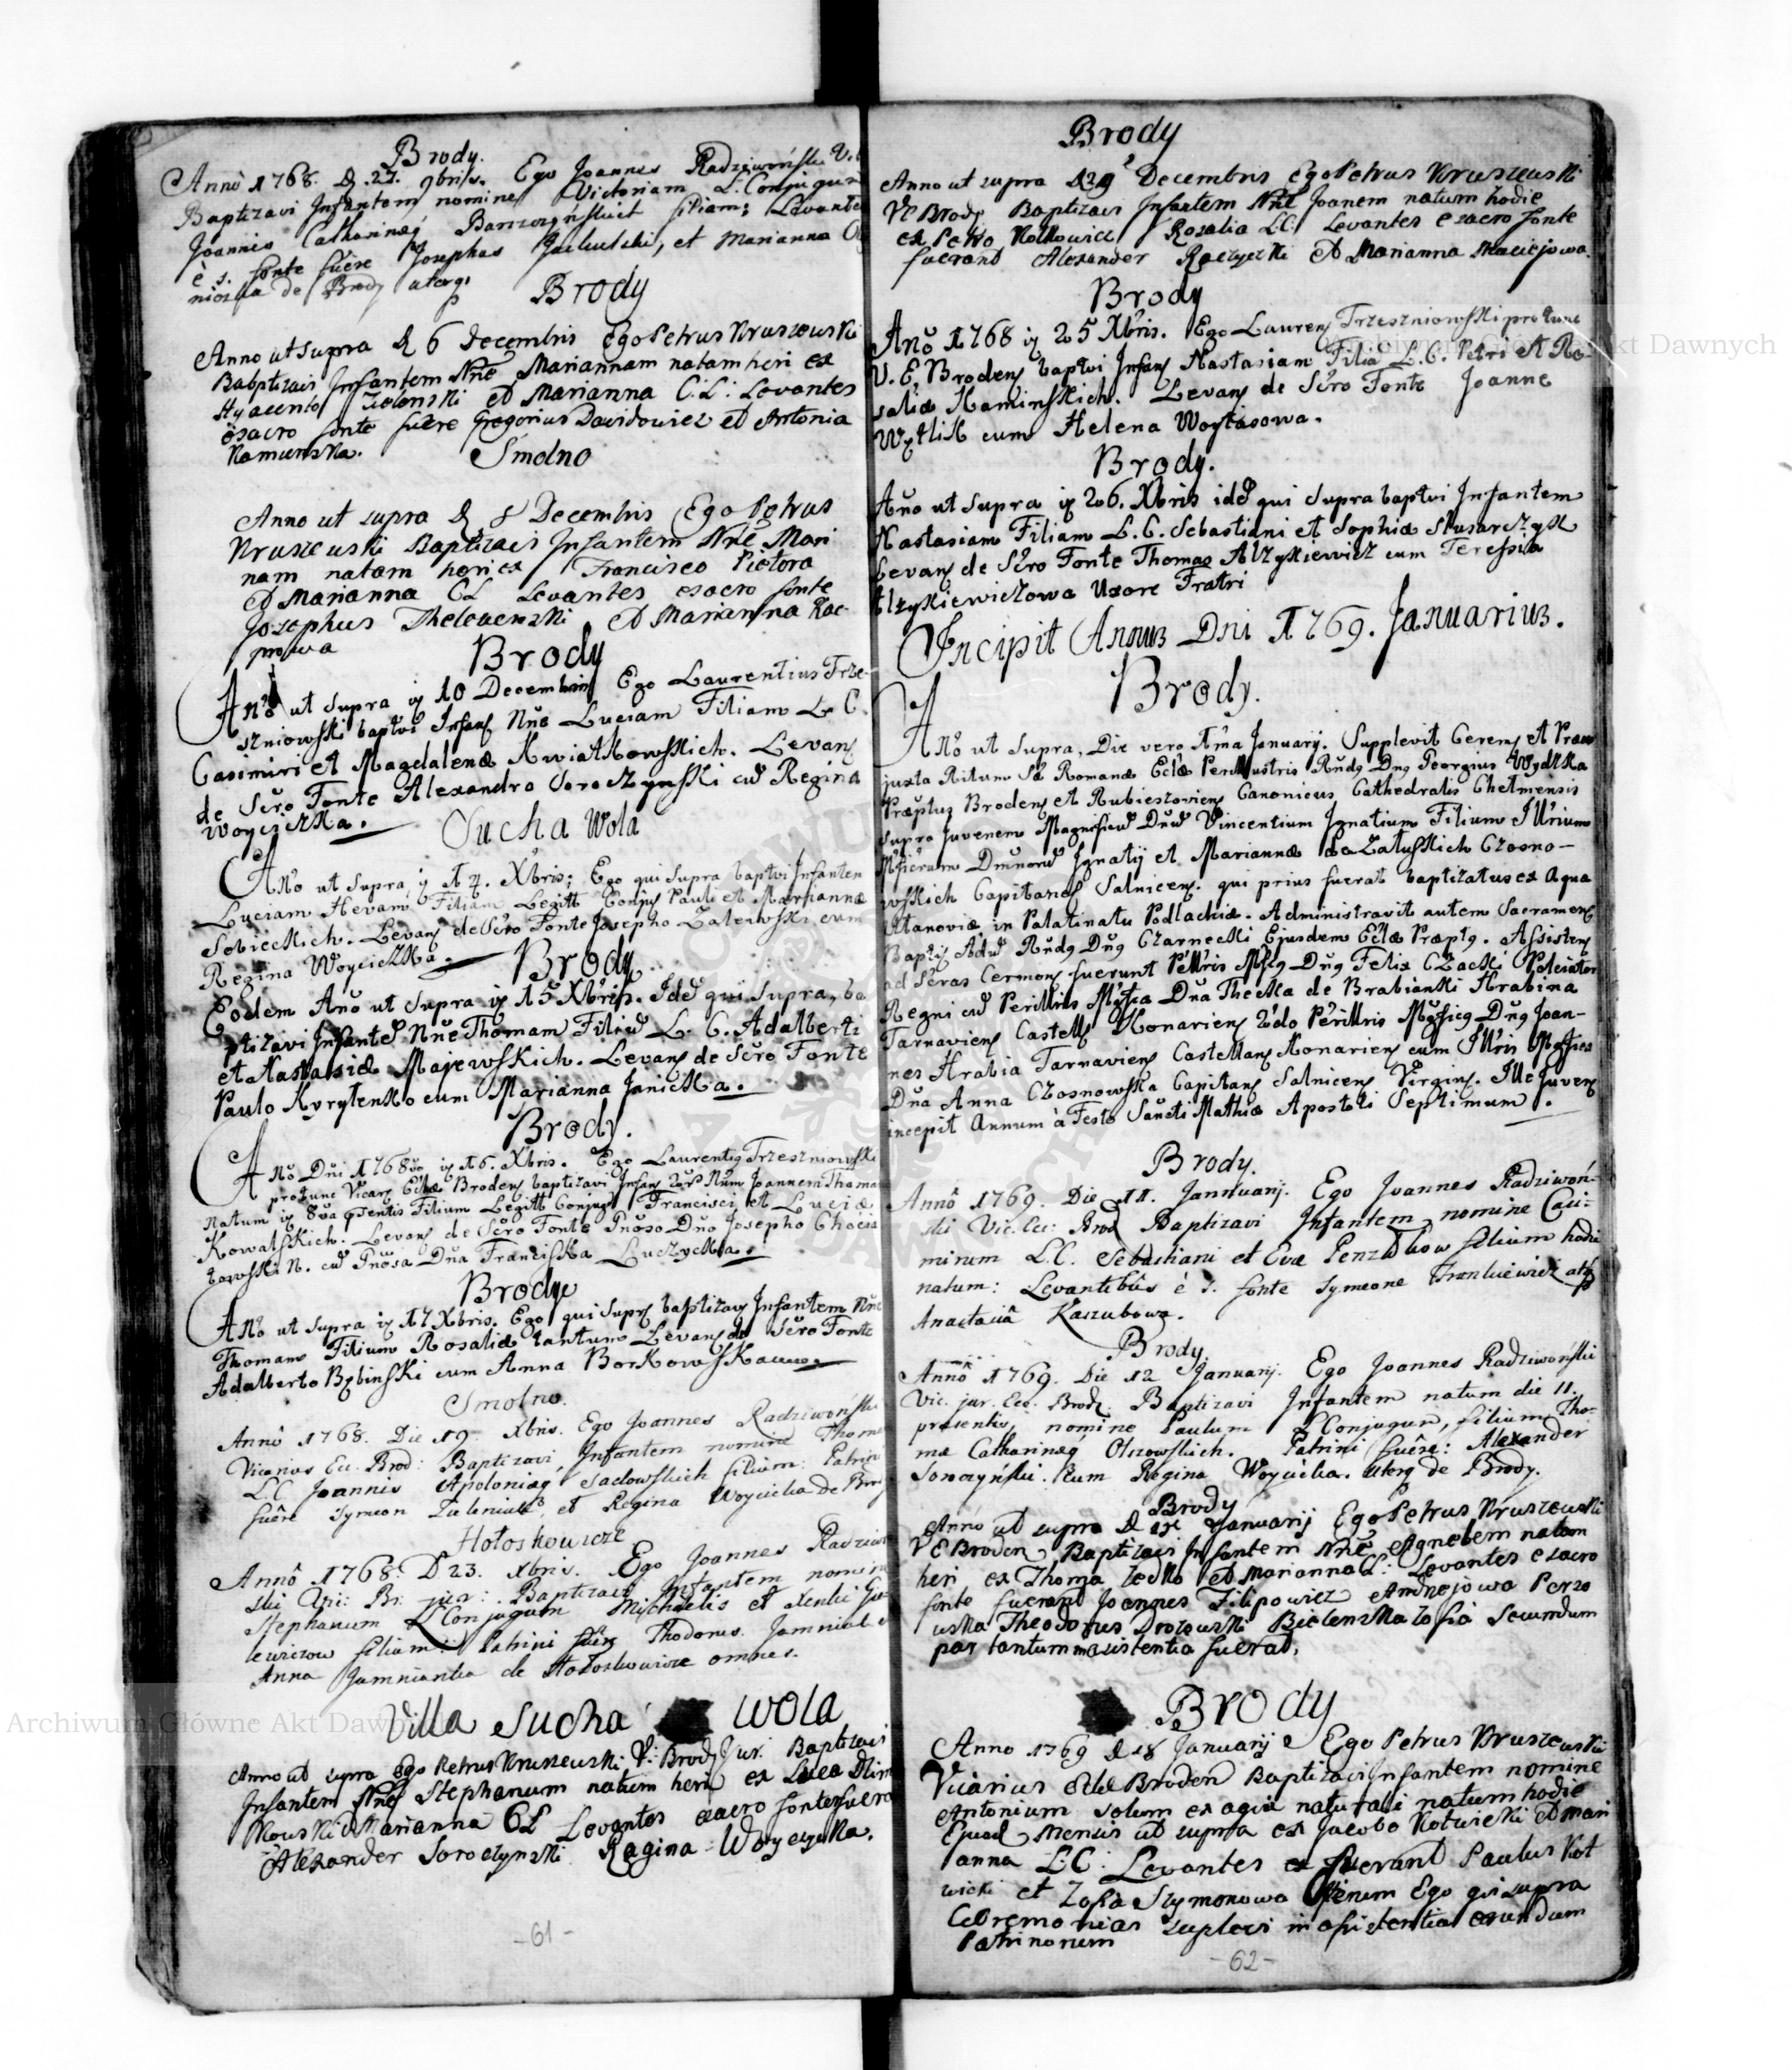 Brody.
Annô 1768. D. 27. 9bris. Ego Joannes Radziwoński Vi
Baptizavi Infantem nomine Victoriam L. Conjugum
Joannis Catharinæq filiam; Levantes
è s. fonte fuêre Josephus et Marianna
de Brody uterq
Brody
Anno ut supra D 6 Decembris Ego Petrus Kruszewski
Babptizavi Infantem Nnē Mariannam natam heri ex
Hyacento Zielenski et Marianna C: L: Levantes
esacro fonte fuêre Gregorius Davidowicz et Antonia
Kamienska.
Smolno
Anno ut supra D 8 Decembris Ego Petrus
Kruszewski Baptizavi Infantem Nnē Mari
nam natam heri ex Francisco Pictora
et Marianna CL Levantes esacro fonte
Josephus et Marianna Kac-
prowa
Brody
Añô ut supra 10 Decembris Ego Laurentius Trze-
szniowski Infan Nne Luciam Filiam L. C.
Casimiri et Magdalenæ Kwiatkowskich. Levan
de Scro Fonte Alexandro Soroczynski cū Regina
Woyciczka.
Sucha Wola
Añô ut supra, 14. Xbris; Ego qui supra baptvi Infantem
Luciam Hevam Filiam Legitt Conjug Pauli et Mariannæ
Sobieckich. Levan de Scro Fonte Josepho Zalewski cum
Regina Woyciczka.
Brody
Eodem Año ut supra 15 Xbris. Idē qui supra, ba
ptizavi Infantē Nne Thomam Filiū L. C. Adalberti
et Nastasiæ Majewskich. Levan de Scro Fonte
Paulo Kyrylenko cum Marianna Janicka.
Brody.
Añô Dni 1768vo 16. Xbris. Ego Laurentig Trzeszniowski
protunc Vicar Eclæ Broden baptizavi Infan Nom Joannem Thomam
Natum 8va psentis Filium Legitt Conjug Francisci et Luciæ
Kowalskich. Levan de Scro Fonte Gnoso Dno Josepho
N. cū Gnosa Dna Franciska Luczycka.
Brody
Añô ut supra 17 Xbris. Ego qui supra baptizavi Infantem Nne
Thomam Filium Rosaliæ tantum Levan de Scro Fonte
Adalberto Bębinski cum Anna Borkowska
Smolno.
Annô 1768. Die 19. Xbris. Ego Joannes Radziwoński
Vicarius Ecc. Brod: Baptizavi, Infantem nomine Thomæ
L.C. Joannis Apoloniæq Sadowskich filium: Patrini
fuêre Symeon et Regina Woycicka de Brody
Hołoskowicze
Annô 1768. D 23. Xbris. Ego Joannes Radziwoń
ski Baptizavi Infantem nomine
Stephanum L Conjugum Michaelis et
filium: Patrini fuêre Thodorus Jamniak et
Anna Jamnianka de Hołoskowicze omnes.
Villa Sucha Wola
Anno ut supra Ego Petrus Kruszewski V: Brod Jur: Baptizavi
Infantem Nne Stephanum natum heri ex Luca Dłim
kowski et Marianna CL Levantes esacro fonte fuera
Alexander Soroczynski Ragina Woyczycka.
-61-
Brody
Anno ut supra D 9 Decembris Ego Petrus Kruszewski
VE Brody Baptizavi Infantem Nnē Joanem natum hodie
ex Petro Kolkowicz Rosalia LC: Levantes esacro fonte
fuerant Alexander Raczycki et Marianna Maciejowa.
Brody
Añô 1768 25 Xbris. Ego Lauren Trzeszniowski protunc
V. E. Broden baptvi Infan Nastasiam Filiā L. C. Petri et Ro-
saliæ Kaminskich. Levan de Scro Fonte Joanne
Wytlik cum Helena Woytasowa.
Brody.
Año ut supra 26. Xbris idē qui supra baptvi Infantem
Nastasiam Filiam L. C. Sebastiani et Sophiæ Slusarczyk
Levan de Scro Fonte Thomas Alzykiewicz cum Teressia
Alzykiewiczowa Uxore Fratri
Incipit Annus Dni 1769. Januarius.
Brody.
Añô ut supra, Die vero 1ma Januarij. Supplevit Ceren et Praw
juxta Ritum Sæ Romanæ Eclæ Perillustris Rndg Dng Georgius Wydzka
Præptus Broden et Rubieszovien Canonicus Cathedralis Chelmensis
supra juvenem Magnificū Dnū Vincentium Ignatium Filium Illrium
Mficrum Dmnorū Ignatij et Mariannæ de Załuskich Czosno-
wskich Capitan Salnicen. qui prius fuerat baptizatus ex aqua
Stanoviæ in Palatinatu Podlachiæ. Administravit autem Sacramen
Bapt Adm Rndg Dng Czarnecki Ejusdem Eclæ Præptg. Assisten
ad Scras Cermon fuerunt Pillris Mfcg Dng Felix Czacki
Regni cū Perillris Mgfica Dna Thecla de Brabianki Hrabina
Tarnavien Castell Konarien 2do Perillris Mgficg Dng Joan-
nes Hrabia Tarnavien Castellan Konarien cum Illris Mgfica
Dna Anna Czosnowska Capitan Salnicen Virgin. Ille Juven
incepit Annum à Festo Sancti Mathiæ Apostoli Septimum.
Brody.
Annô 1769. Die 11. Jannuarij. Ego Joannes Radziwoń-
ski Vic. Ecc: Brod Baptizavi Infantem, nomine Casi-
mirum L.C. Sebastiani et Evæ filium hodie
natum: Levantibûs è s. fonte Symeone atq
Anastaciâ Kaszubowa.
Brody.
Annô 1769. Die 12 Januarij. Ego Joannes Radziwoński
Vic. jur. Ecc. Brod. Baptizavi Infantem natum die 11.
presentis, nomine Paulum L Conjugum, filium Tho-
mæ Catharinæq Olszowskich. Patrini fuêre: Alexander
Soroczyński. Kum Regina Woycicka. uterq de Brody.
Brody
Anno ut supra D Januarij Ego Petrus Kruszewski
VE Broden Baptizavi Infantem Nnē Agnetem natam
heri ex Thoma Zedko et Marianna L: Levantes esacro
fonte fuerant Joannes Filipowicz Andrejowa Perzo
uska Theodorus Drozowski Bielenska Zofia secundum
par tantum in assistentia fuerat.
Brody
Anno 1769 D 18 Januarij Ego Petrus Kruszewski
Vicarius Eclæ Broden Baptizavi Infantem nomine
Antonium solum ex aqua naturali natum hodie
Ejusd mensis ut supra ex Jacobo Kotwicki et Mari
anna L:C: Levantes fuerant Paulus Kot
wicki et Zofia Szymonowa Iterum Ego qui supra
Ceremonias suplevi in assistentia eorundum
Patrinorum
-62-
Archiwum Główne Akt Dawnych
Archiwum Główne Akt Dawnych